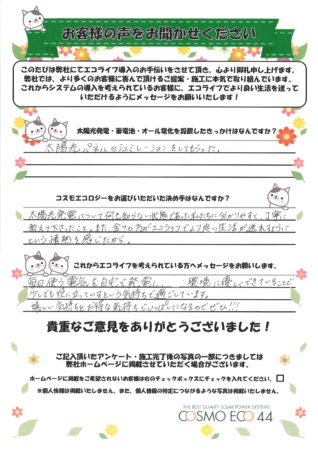 お客様の声をお聞かせください
このたびは弊社にてエコライフ導入のお手伝いをさせて頂き、心より御礼申し上げます。
弊社では、より多くのお客様に喜んで頂けるご提案・施工に本気で取り組んでいます。
これからシステムの導入を考えられているお客様に、エコライフでより良い生活を送って
いただけるようにメッセージをお願いいたします！
太陽光発電・蓄電池・オール電化を設置したきっかけはなんですか？
太陽光パネルのシュミレーションをしてもらった。
コスモエコロジーをお選びいただいた決め手はなんですか？
太陽光発電について何も知らない状態であった私たちに分かりやすく、丁寧に
教えて下さったこと。また、全ての方がエコライフでより良い生活が送れるように
という情熱を感じたから。
これからエコライフを考えられている方へメッセージをお願いします。
毎日使う電気を自宅で発電し、環境に優しくできていることで
少しでも役に立っているという気持ちで過ごしています。
嬉しい気持ちとお得な気持ちでいっぱいになるのでぜひ!!!
貴重なご意見をありがとうございました！
ご記入頂いたアンケート・施工完了後の写真の一部につきましては
弊社ホームページに掲載させていただく場合がございます。
ホームページに掲載をご希望されないお客様は右のチェックボックスにチェックを入れてください。□
※個人情報は掲載いたしません、また、個人情報の特定につながるような写真は掲載いたしません。
THE BEST QUALITY SOLAR POWER SYSTEMS
COSMO ECO 44